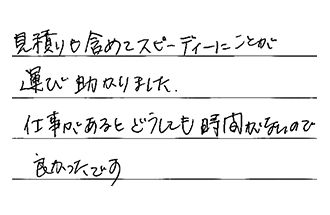 見積りも含めてスピーディーにことが
運び助かりました.
仕事があるとどうしても時間がないので
良かったです